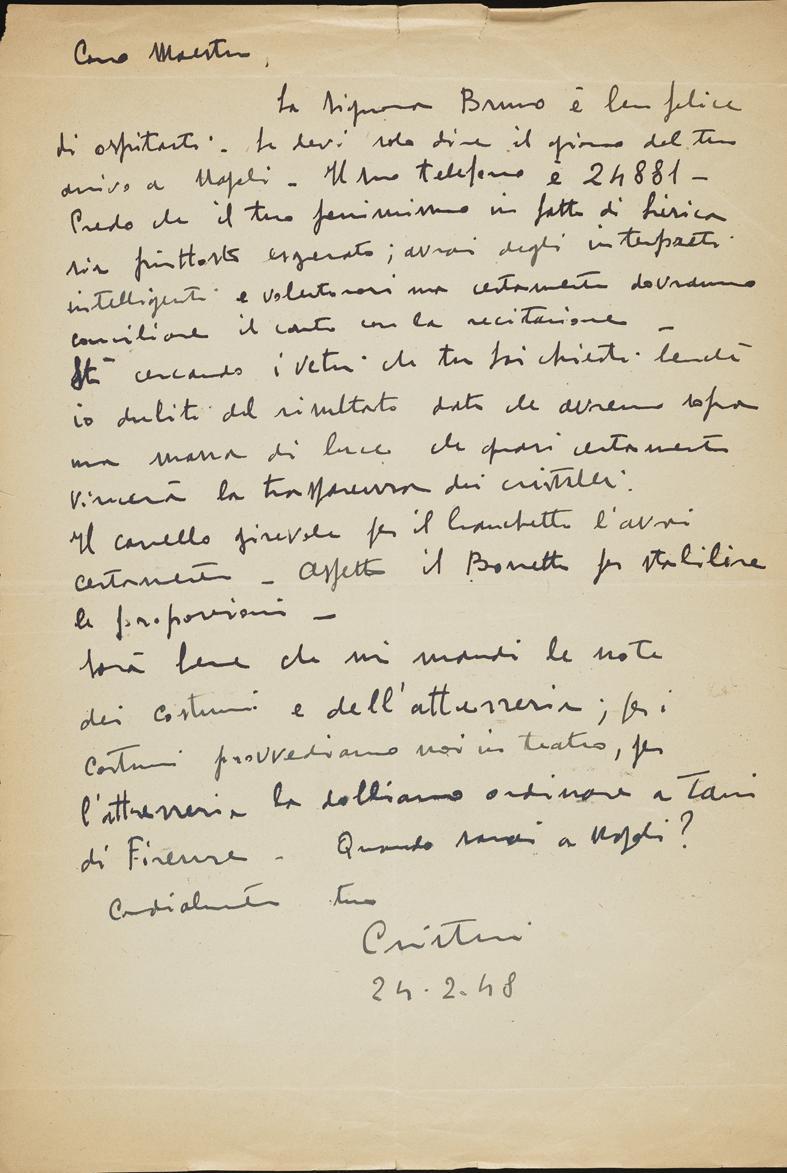 Caro Maestro,
La Signora Bruno è ben felice
di ospitarti. Le devi solo dire il giorno del tuo
arrivo a Napoli - Il suo telefono è 24881 -
Credo che il tuo pessimismo in fatto di lirica
sia piuttosto esagerato; avrai degli interpreti
intelligenti e volenterosi ma certamente dovranno
conciliare il canto con la recitazione -
Sto cercando i vetri che tu hai chiesti benchè
io dubiti del risultato dato che avremo sopra
una massa di luce che quasi certamente
vincerà la trasparenza dei cristalli.
Il carrello girevole per il banchetto l'avrai
certamente - Aspetto il Bozzetto per stabilire
le proporzioni -
Sarà bene che mi mandi le note
dei costumi e dell'attrezzeria; per i
costumi provvediamo noi in teatro, per
l'attrezzeria la dobbiamo ordinare a Tani
di Firenze - Quando sarai a Napoli?
Cordialmente tuo
Cristini
24.2.48